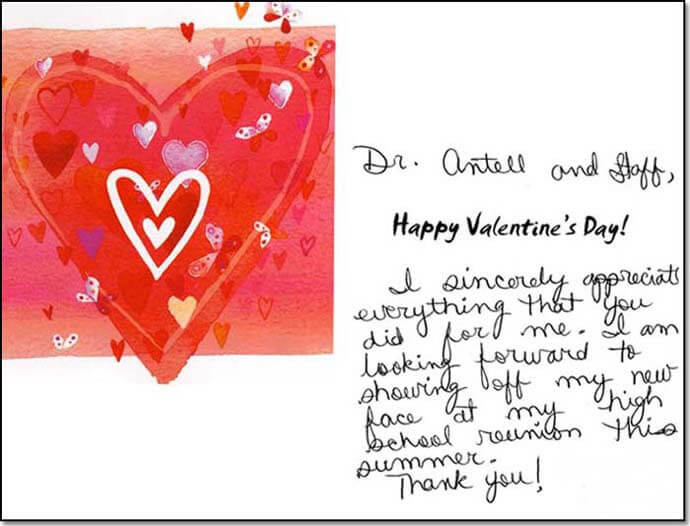 Dr. Antell and Staff,
Happy Valentine's Day!
I sincerely appreciate
everything that you
did for me. I am
looking forward to
showing off my new
face at my high
school reunion this
summer.
Thank you!